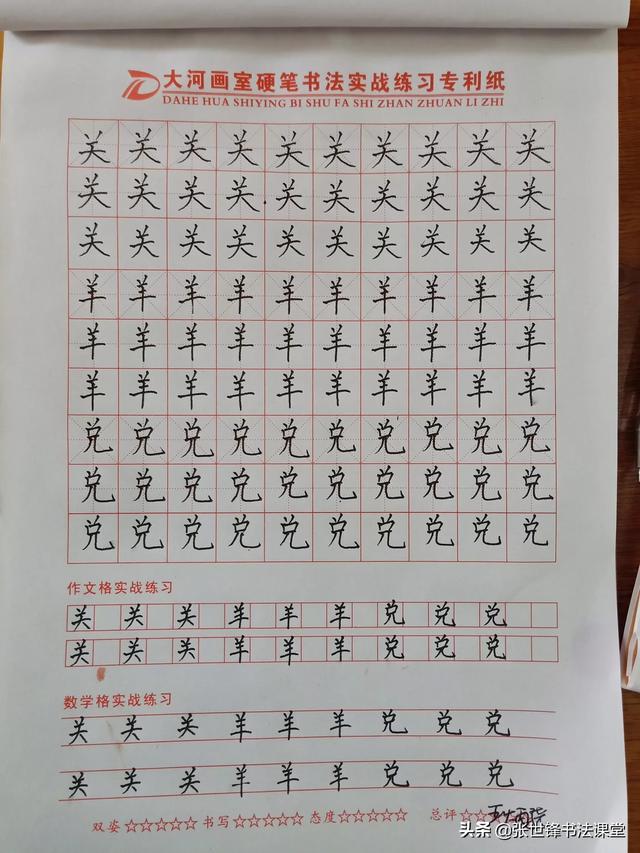 大河画室硬笔书法实战练习专利纸
DAHE HUA SHIYING BI SHU FA SHI ZHAN ZHUAN LI ZHI
关关关关关关关关关关
关关关关关关关关关关
关关关关关关关关关关
羊羊羊羊羊羊羊羊羊羊
羊羊羊羊羊羊羊羊羊羊
羊羊羊羊羊羊羊羊羊羊
兑兑兑兑兑兑兑兑兑兑
兑兑兑兑兑兑兑兑兑兑
兑兑兑兑兑兑兑兑兑兑
作文格实战练习
关 关 关 羊 羊 羊 兑 兑 兑
关 关 关 羊 羊 羊 兑 兑 兑
数学格实战练习
关 关 关 羊 羊 羊 兑 兑 兑
关 关 关 羊 羊 羊 兑 兑 兑
双姿☆☆☆☆☆书写☆☆☆☆☆态度☆☆☆☆☆ 总评☆☆
头条@张世锋书法课堂